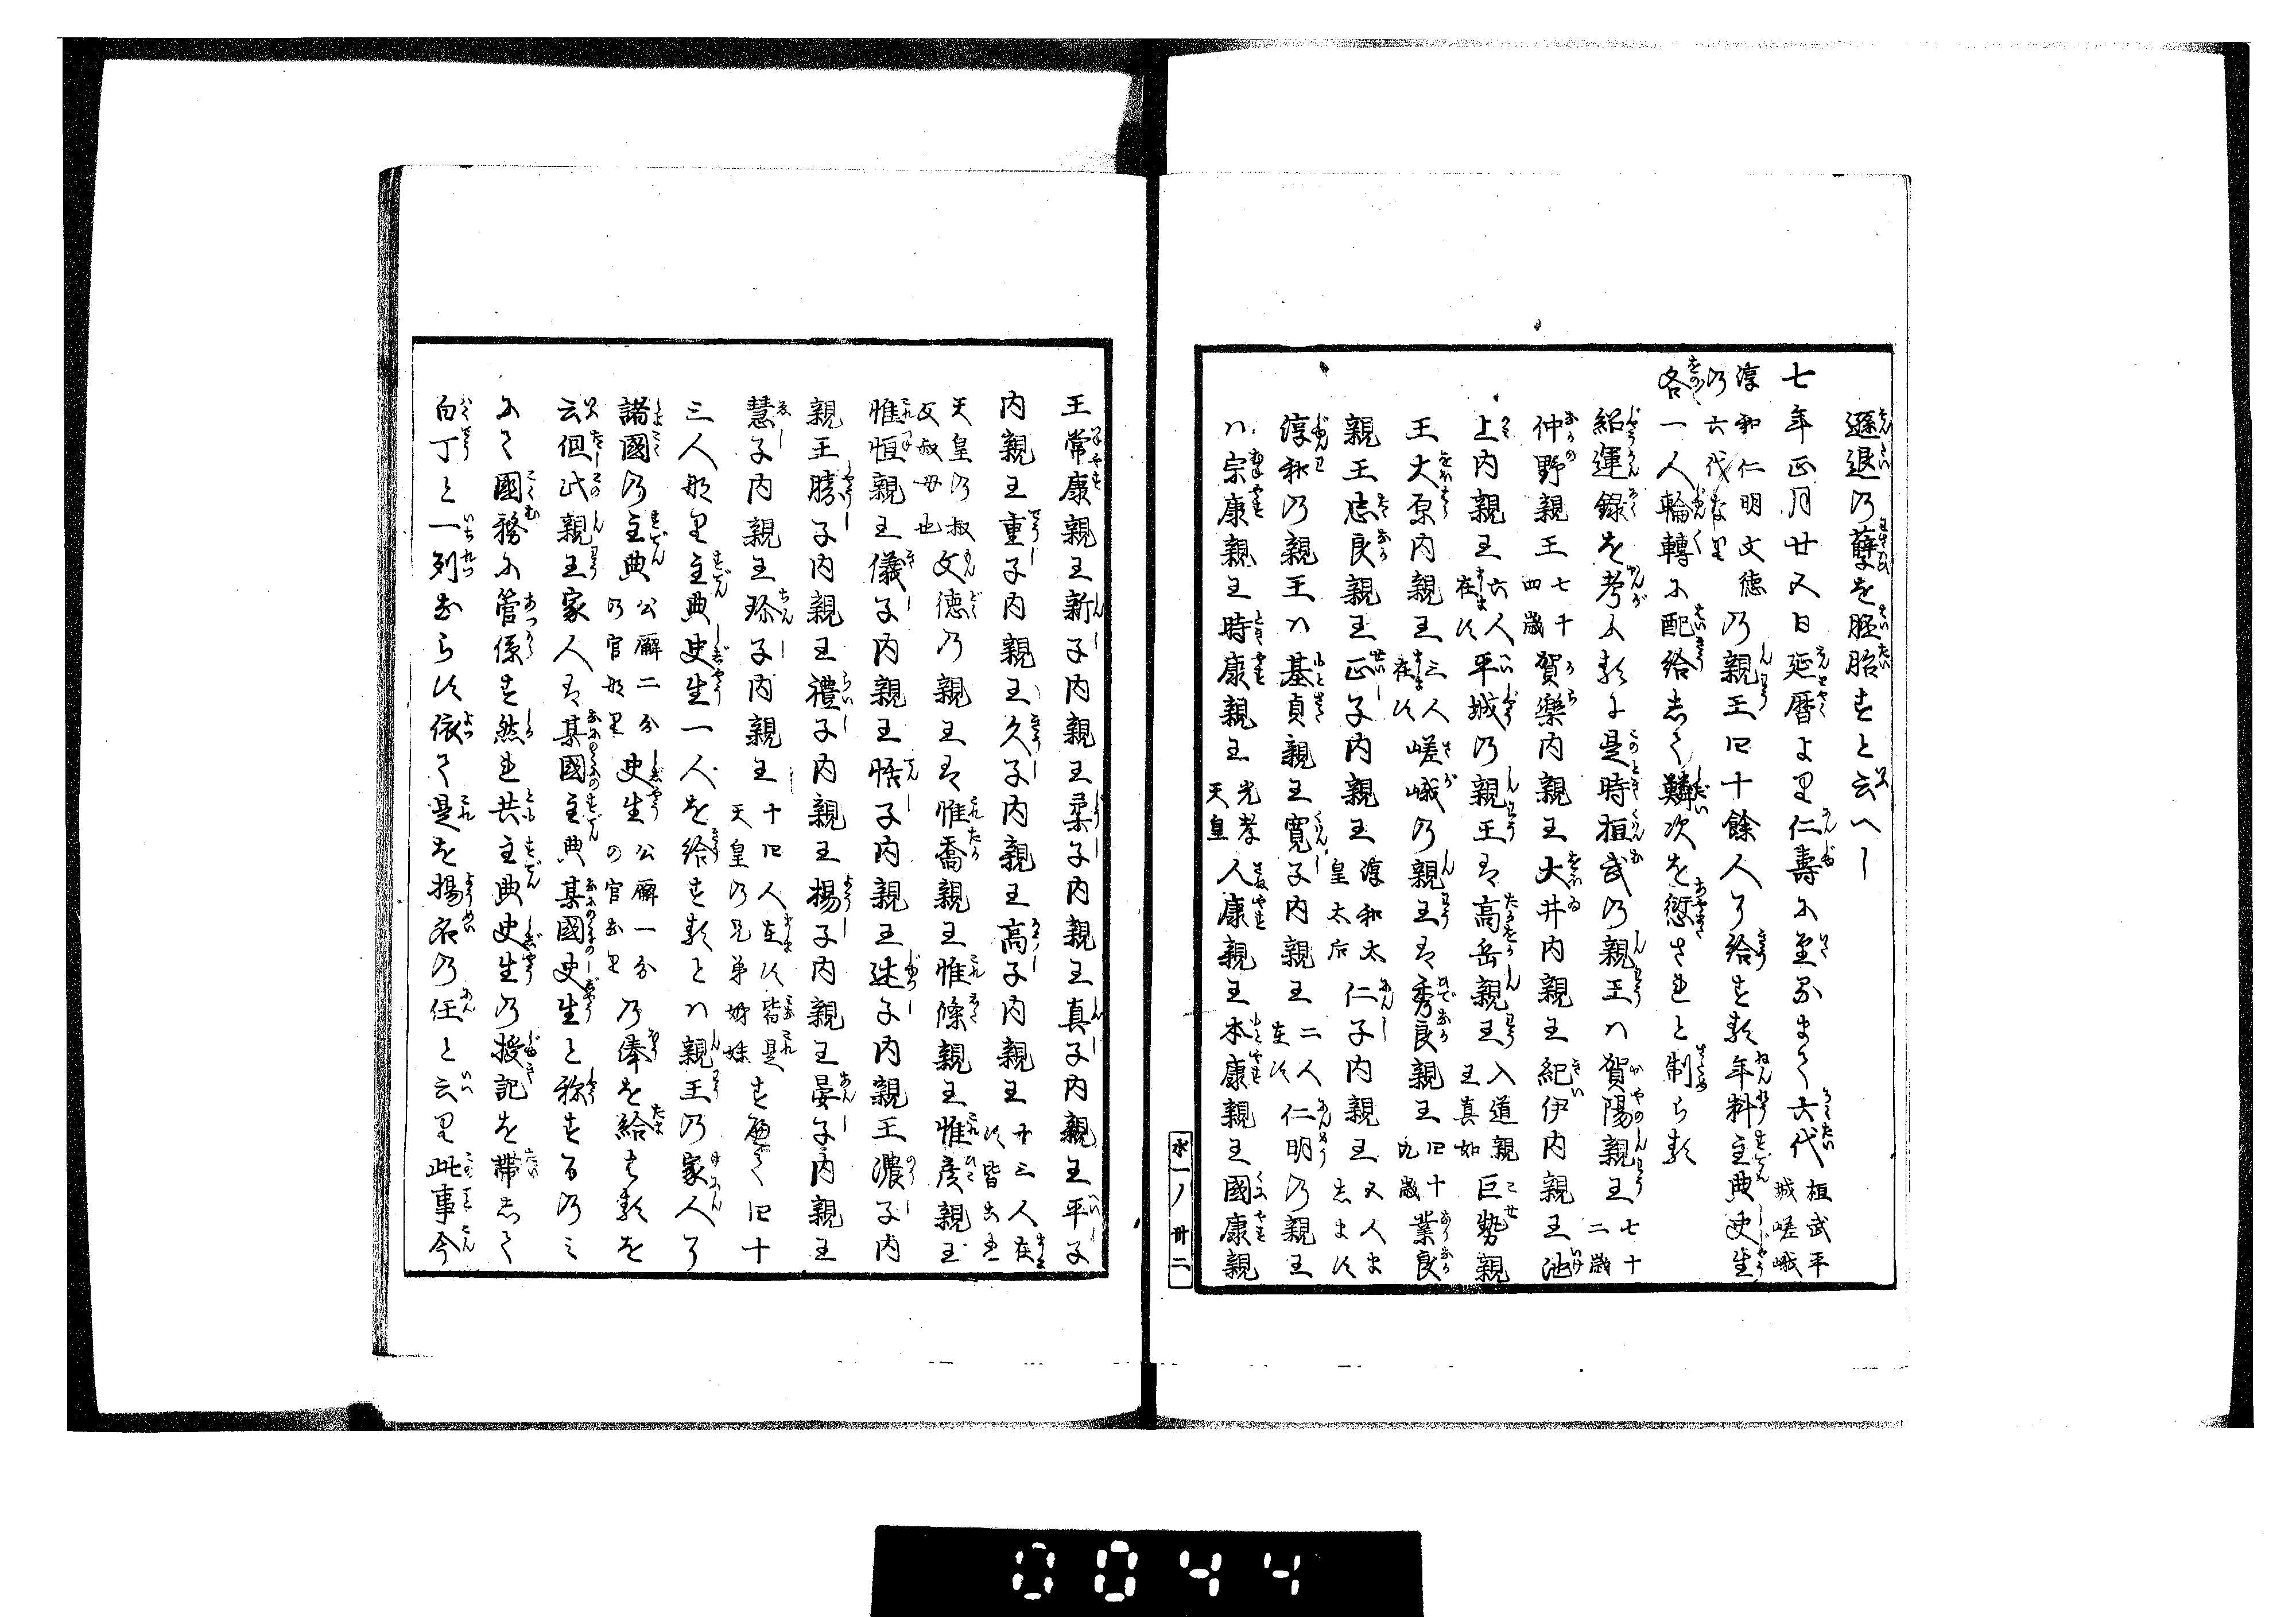 遜退乃孽を胚胎すと云へし
七年正月廿又日延暦より仁壽に至るまて六代桓武平城嵯峨
淳和仁明文徳乃六代なり乃親王四十餘人に給する年料主典史生
各一人輪轉に配給して鱗次を愆されと制らる
紹運録を考ふるに是時桓武乃親王ハ賀陽親王七十二歳
仲野親王七十四歳賀樂内親王大井内親王紀伊内親王池
上内親王六人在ます平城乃親王は高岳親王入道親王真如巨勢親
王大原内親王三人在ます嵯峨乃親王は秀良親王四十九歳業良
親王忠良親王正子内親王淳和太皇太后仁子内親王又人まします
淳和乃親王ハ基貞親王寛子内親王二人在す仁明乃親王
ハ宗康親王時康親王光孝天皇人康親王本康親王國康親
水一ノ卅二
王常康親王新子内親王柔子内親王真子内親王平子
内親王重子内親王久子内親王高子内親王十三人在す皆これ
天皇乃叔父叔母也文徳乃親王は惟喬親王惟條親王惟彦親王
惟恒親王儀子内親王内親王述子内親王濃子内
親王勝子内親王禮子内親王揚子内親王晏子内親王
慧子内親王珍子内親王十四人在す皆是天皇乃兄弟姉妹すへて四十
三人なり主典史生一人を給するとハ親王乃家人に
諸國乃主典公廨二分乃官なり史生公廨一分の官なり乃俸を給はるを
云但此親王家人は某國主典某國史生と称するのミ
にて國務に管係す然れ共主典史生乃授記を帯して
白丁と一列ならす依て是を揚名乃任と云り此事今